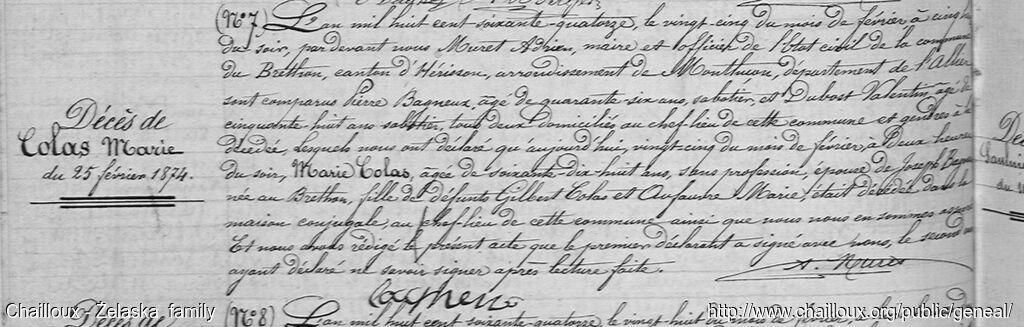 (N° 7) L'an mil huit cent soixante-quatorze, le vingt-cinq du mois de février à cinq
du soir, par devant nous Muret Adrien, maire et officier de l'état civil de la commune
du Brethon, canton d'Hérisson, arrondissement de Montluçon, département de l'Allier
sont comparus Pierre Bagneux, âgé de quarante-six ans, sabotier, et Dubost Valentin, âgé de
cinquante-huit ans sabotier, tous deux domiciliés au chef-lieu de cette commune et gendres à la
Décès de
Colas Marie
du 25 février 1874.
décédée, lesquels nous ont déclaré qu'aujourd'hui, vingt-cinq du mois de février, à deux heures
du soir, Marie Colas, âgée de soixante-dix-huit ans, sans profession, épouse de Joseph
née au Brethon, fille de défunts Gilbert Colas et Aufauvre Marie, était décédée dans la
maison conjugale, au chef-lieu de cette commune ainsi que nous nous en sommes
Et nous avons rédigé le présent acte que le premier déclarant a signé avec nous, le second
ayant déclaré ne savoir signer après lecture faite.
A. Muret
Décès de
(N° 8) L'an mil huit cent soixante-quatorze, le vingt-huit du mois de
Chailloux - Żelaska family
http://www.chailloux.org/public/geneal/